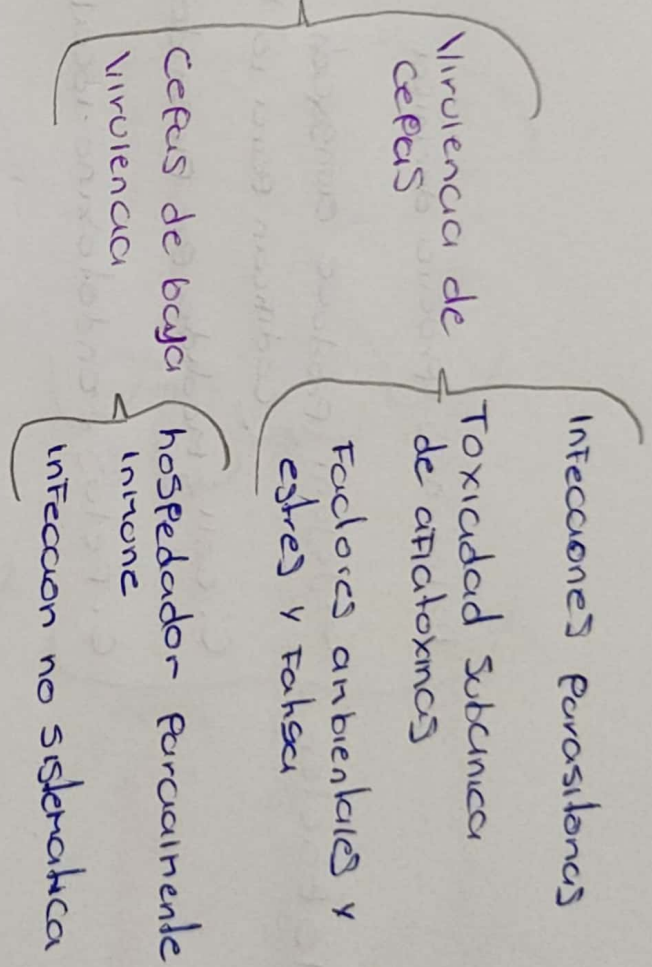 Virulencia de
cepas
Infecciones parasitarias
Toxicidad subclinica
de aflatoxinas
Factores ambientales y
estres y Fatiga
Cepas de baja
Virulencia
hospedador parcialmente
inmune
infeccion no sistematica